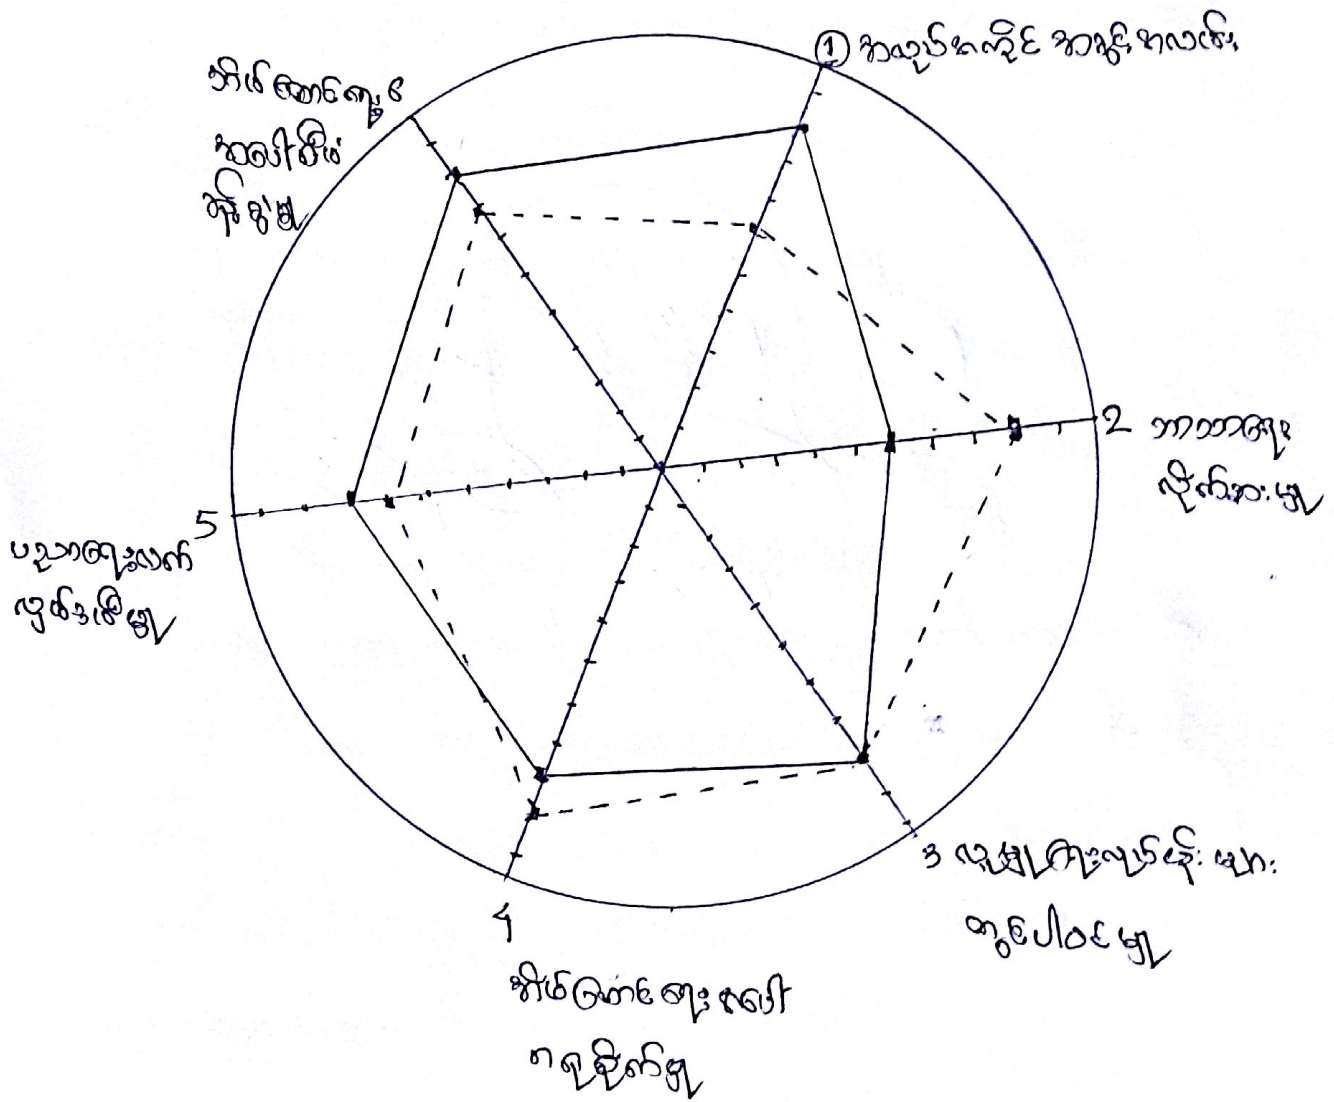 ① အလုပ်အကိုင် အခွင့်အလမ်း
2 ဘာသာရေး
လိုက်စားမှု
3 လူမှုရေးလုပ်ငန်းများ
တွင်ပါဝင်မှု
4
အိမ်ထောင်ရေးအပေါ်
ဂရုစိုက်မှု
5
ပညာရေးလက်
လှမ်းမီမှု
6
အပေါ်စီမံ
ခန့်ခွဲမှု